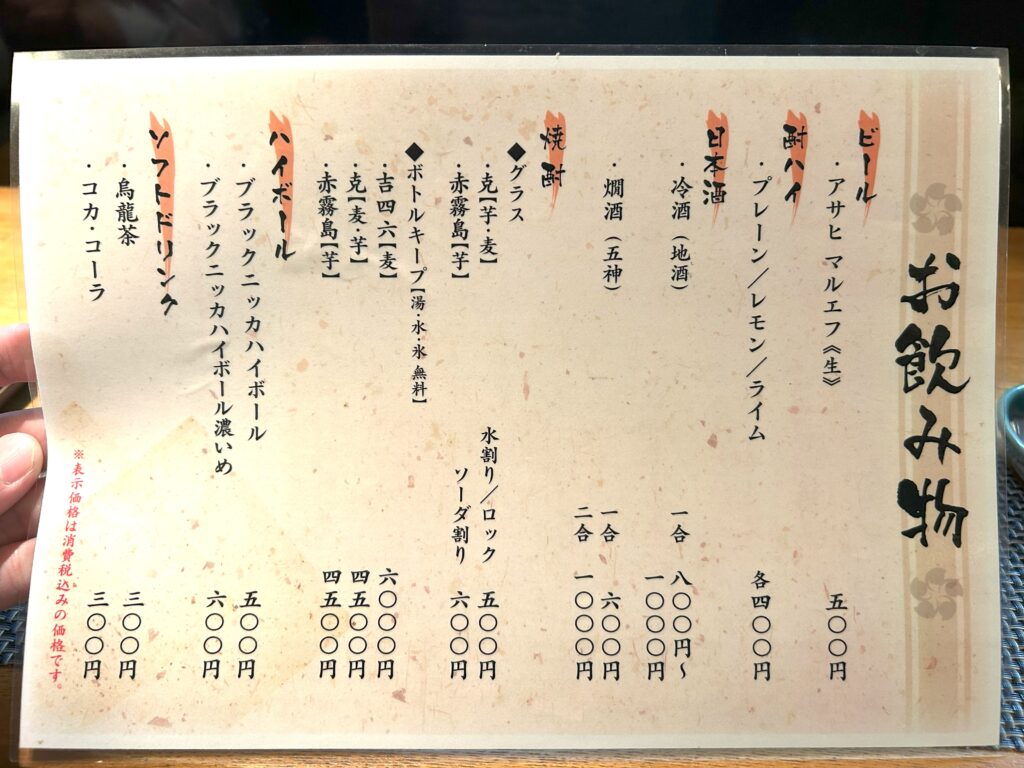 お飲み物
ビール
・アサヒ マルエフ《生》 五〇〇円
酎ハイ
・プレーン／レモン／ライム 各四〇〇円
日本酒
・冷酒（地酒） 一合 八〇〇円〜
一〇〇〇円
・燗酒（五神） 一合 六〇〇円
二合 一〇〇〇円
焼酎
◆グラス
・克【芋・麦】 水割り／ロック 五〇〇円
・赤霧島【芋】 ソーダ割り 六〇〇円
◆ボトルキープ【湯・水・氷 無料】
・吉四六【麦】 六〇〇〇円
・克【麦・芋】 四五〇〇円
・赤霧島【芋】 四五〇〇円
ハイボール
・ブラックニッカハイボール 五〇〇円
・ブラックニッカハイボール濃いめ 六〇〇円
ソフトドリンク
・烏龍茶 三〇〇円
・コカ・コーラ 三〇〇円
※表示価格は消費税込みの価格です。